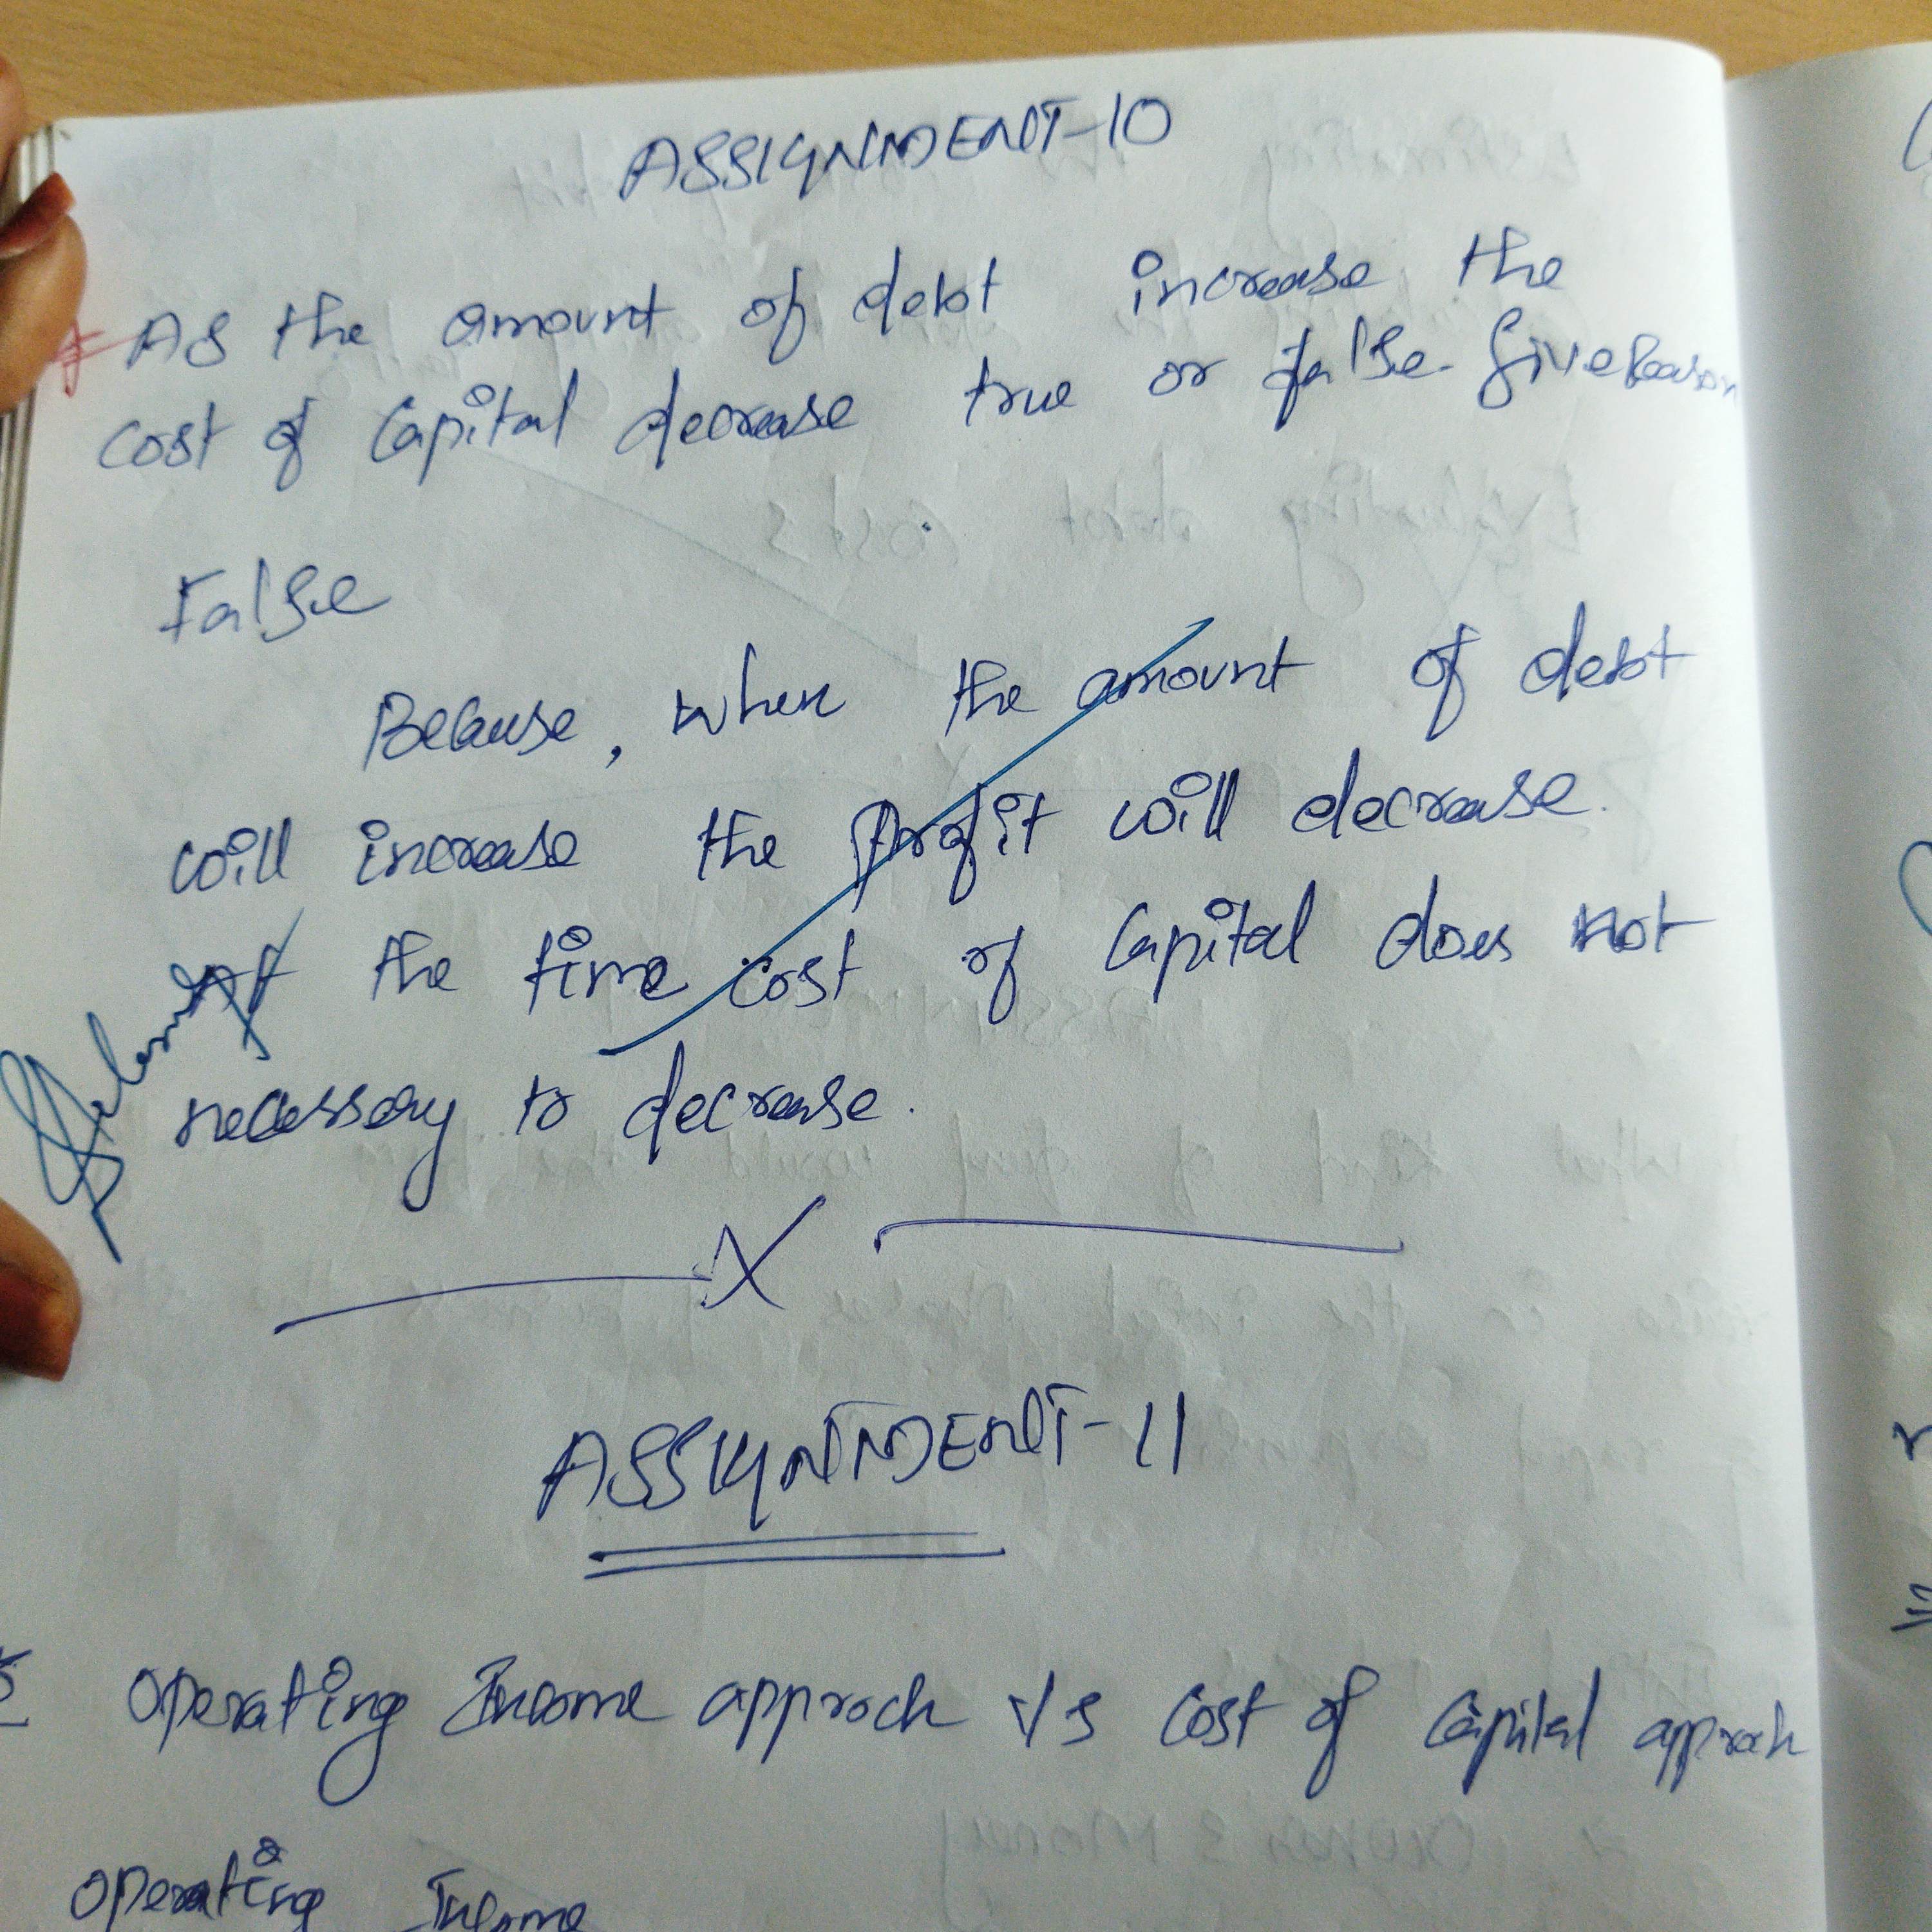 ASSIGNMENT-10
* As the amount of debt increase the
cost of capital decrease true or false. Give Reason
False
Because, when the amount of debt
will increase the profit will decrease.
At the time cost of capital does not
necessary to decrease.
X
ASSIGNMENT-11
Operating Income approch V/s Cost of Capital approch
Operating Income